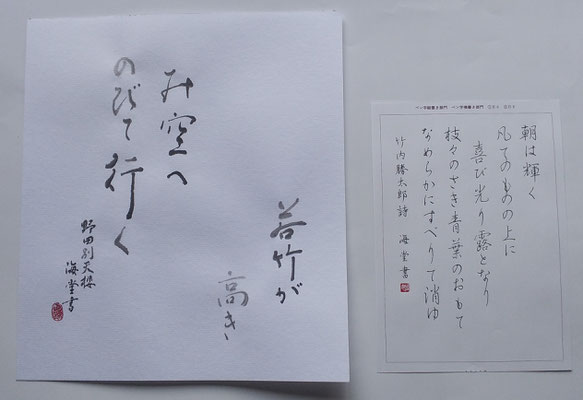 若竹が
高き
み空へ
のびて行く
野田別天楼
海堂書
朝は輝く
凡てのものの上に
喜び光り露となり
枝々のさき青葉のおもて
なめらかにすべりて消ゆ
竹内勝太郎詩 海堂書